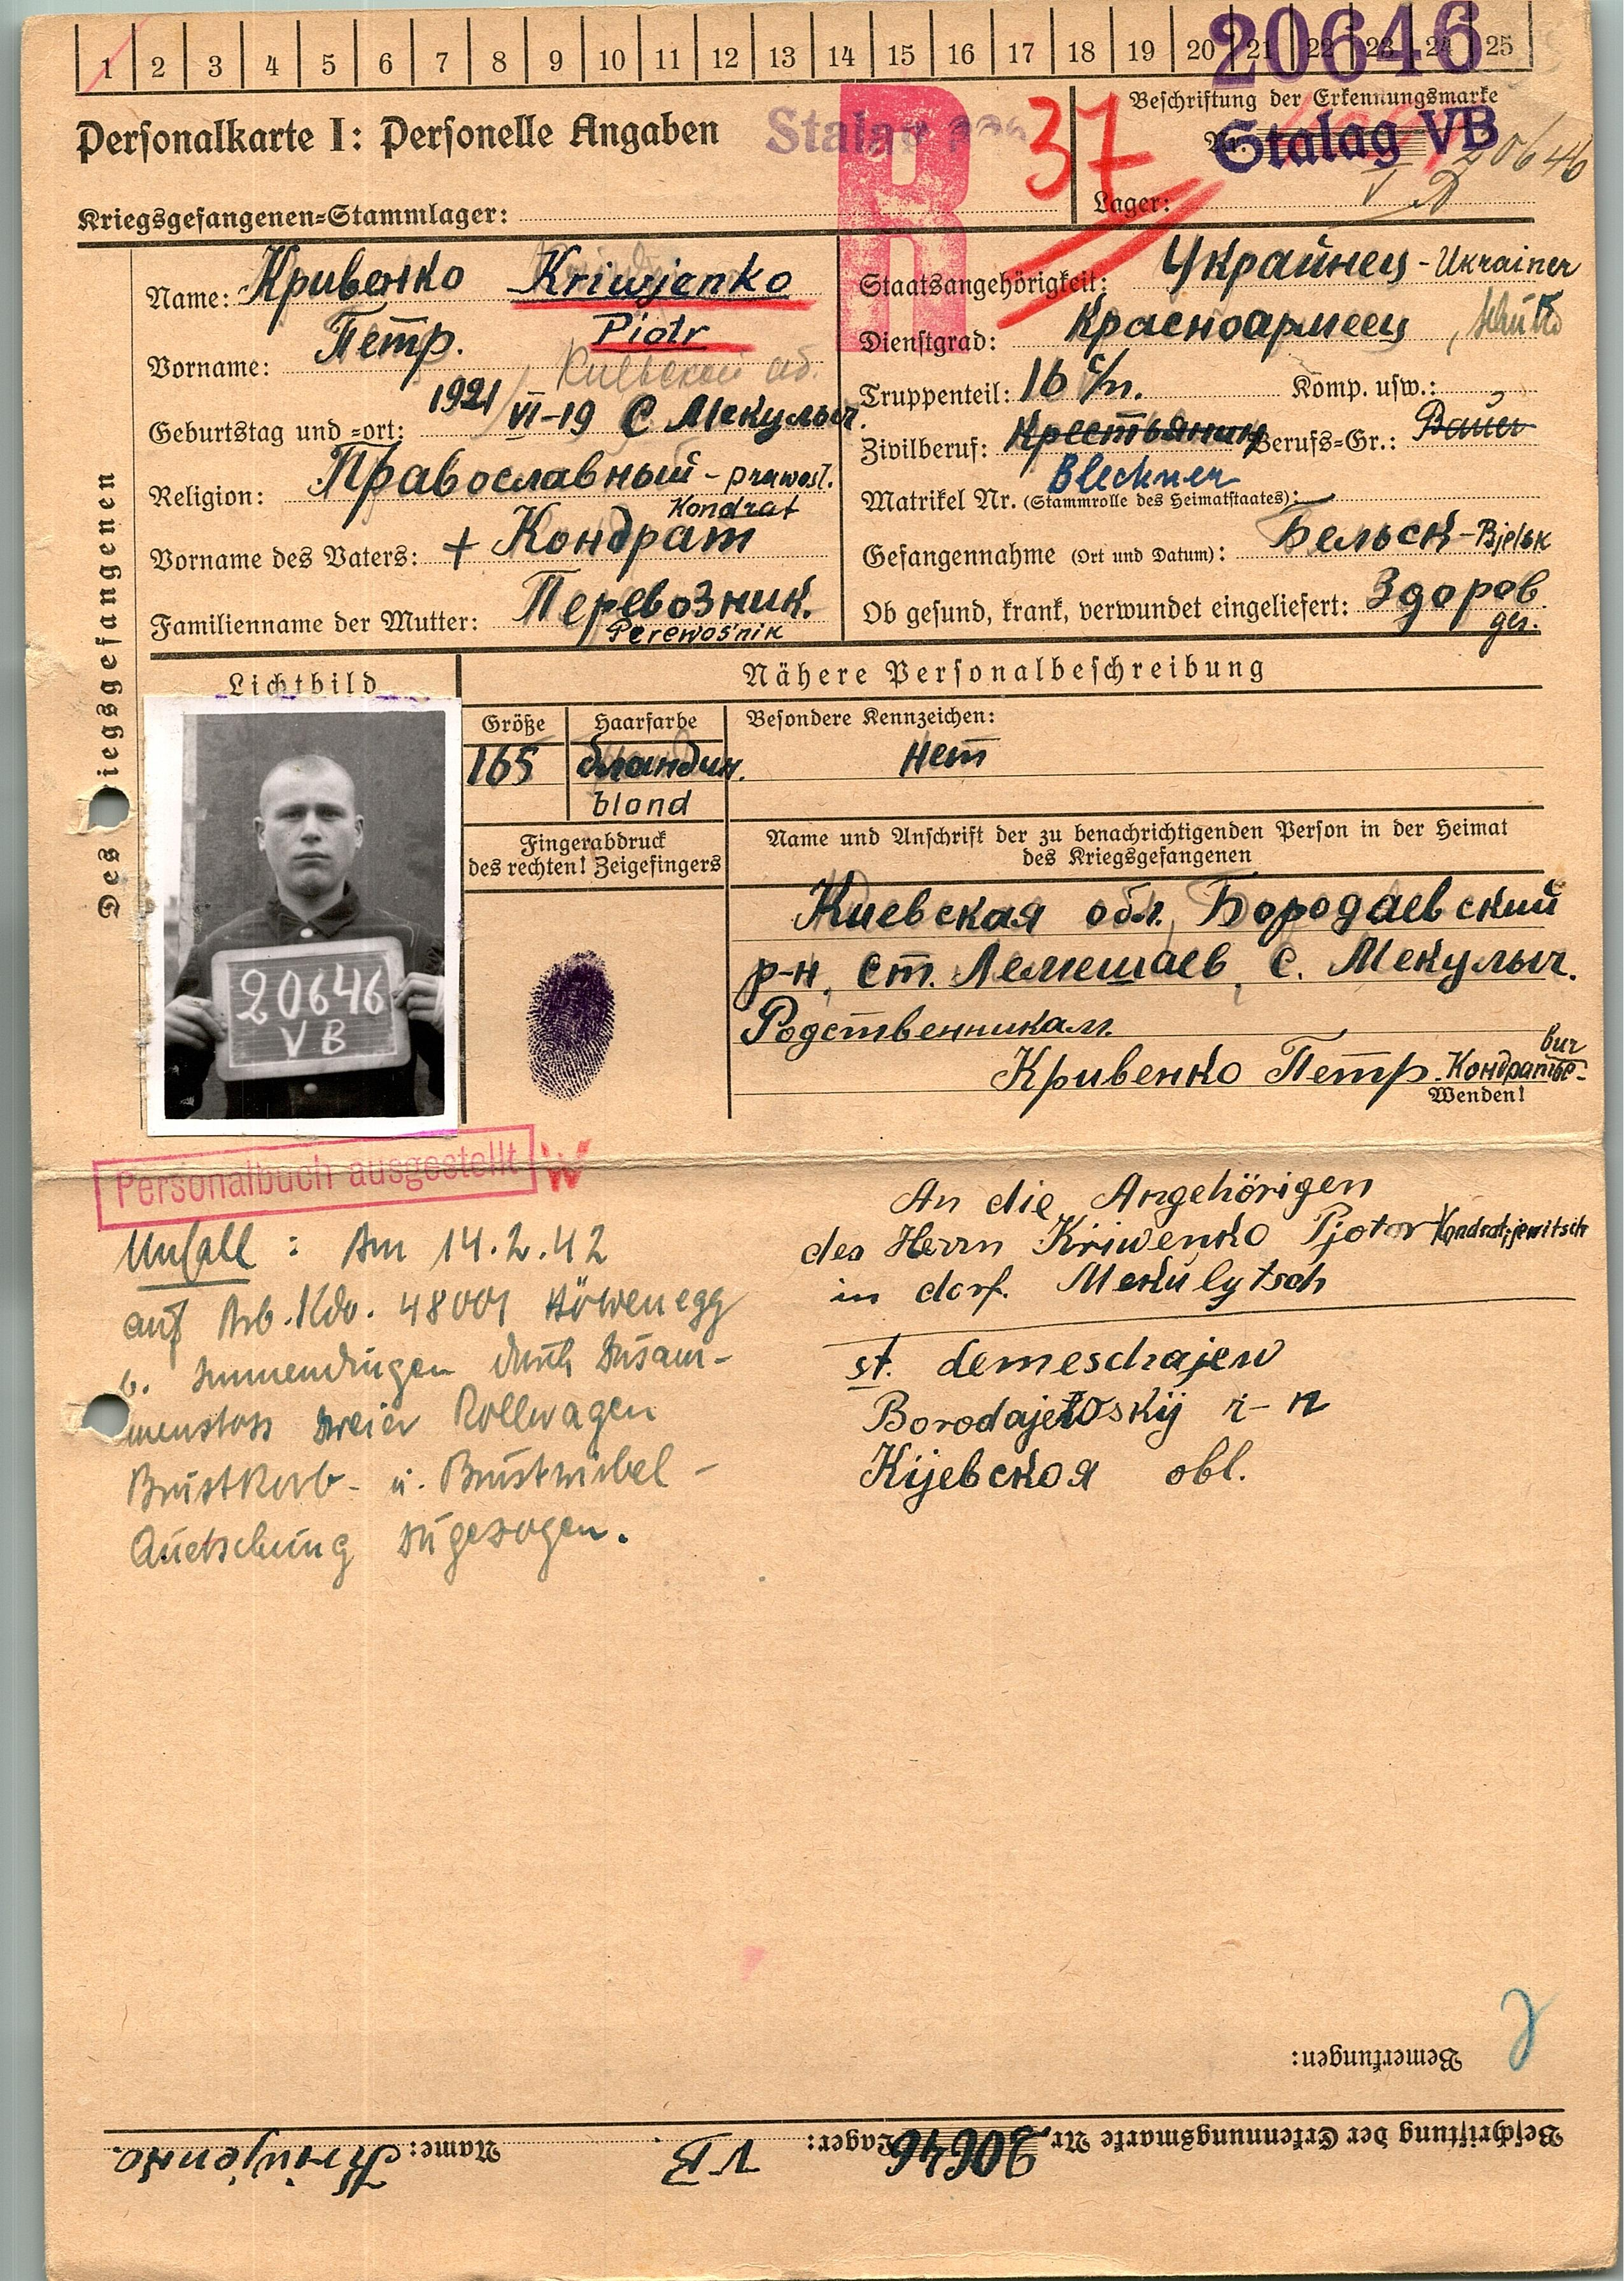 1 2 3 4 5 6 7 8 9 10 11 12 13 14 15 16 17 18 19 20 21 22 23 24 25
20646
Personalkarte I: Personelle Angaben
Stalag
R
37
Beschriftung der Erkennungsmarke
Nr.
Stalag VB
20646
Kriegsgefangenen-Stammlager:
Lager: V B
Des Kriegsgefangenen
Name: Кривенко Kriwjenko
Vorname: Петр. Piotr
Киевской об.
Geburtstag und -ort: 1921 VI-19 С Мекулыч.
Religion: Православный - prawosl.
Kondrat
Vorname des Vaters: + Кондрат
Familienname der Mutter: Перевозник.
Perewosnik
Staatsangehörigkeit: Украинец - Ukrainer
Dienstgrad: Красноармеец
Truppenteil: 16 с/п. Komp. usw.:
Zivilberuf: Крестьянин Berufs-Gr.: Bauer
Blechner
Matrikel Nr. (Stammrolle des Heimatstaates): -
Gefangennahme (Ort und Datum): Бельск - Bjelsk
Ob gesund, krank, verwundet eingeliefert: Здоров.
ges.
Lichtbild
20646
V B
Nähere Personalbeschreibung
Größe Haarfarbe Besondere Kennzeichen:
165 бландин. нет
blond
Fingerabdruck
des rechten! Zeigefingers
Name und Anschrift der zu benachrichtigenden Person in der Heimat
des Kriegsgefangenen
Киевская обл, Бородаевский
р-н, ст. Лемешаев, с. Мекулыч.
Родственникам.
Кривенко Петр Кондратье-
вич
Wenden!
Personalbuch ausgestellt W
Unfall: Am 14.2.42
auf Arb.Kdo. 48001 Höwenegg
b. Immendingen durch Zusam-
menstoss zweier Rollwagen
Brustkorb- u. Brustwirbel-
Quetschung zugezogen.
An die Angehörigen
des Herrn Kriwenko Pjotor Kondratjewitsch
in dorf. Mekulytsch
st. Lemeschajew
Borodajewskij r-n
Kijevская obl.
Bemerkungen:
Beschriftung der Erkennungsmarke Nr. 20646 Lager: VB Name: Kriwjenko.